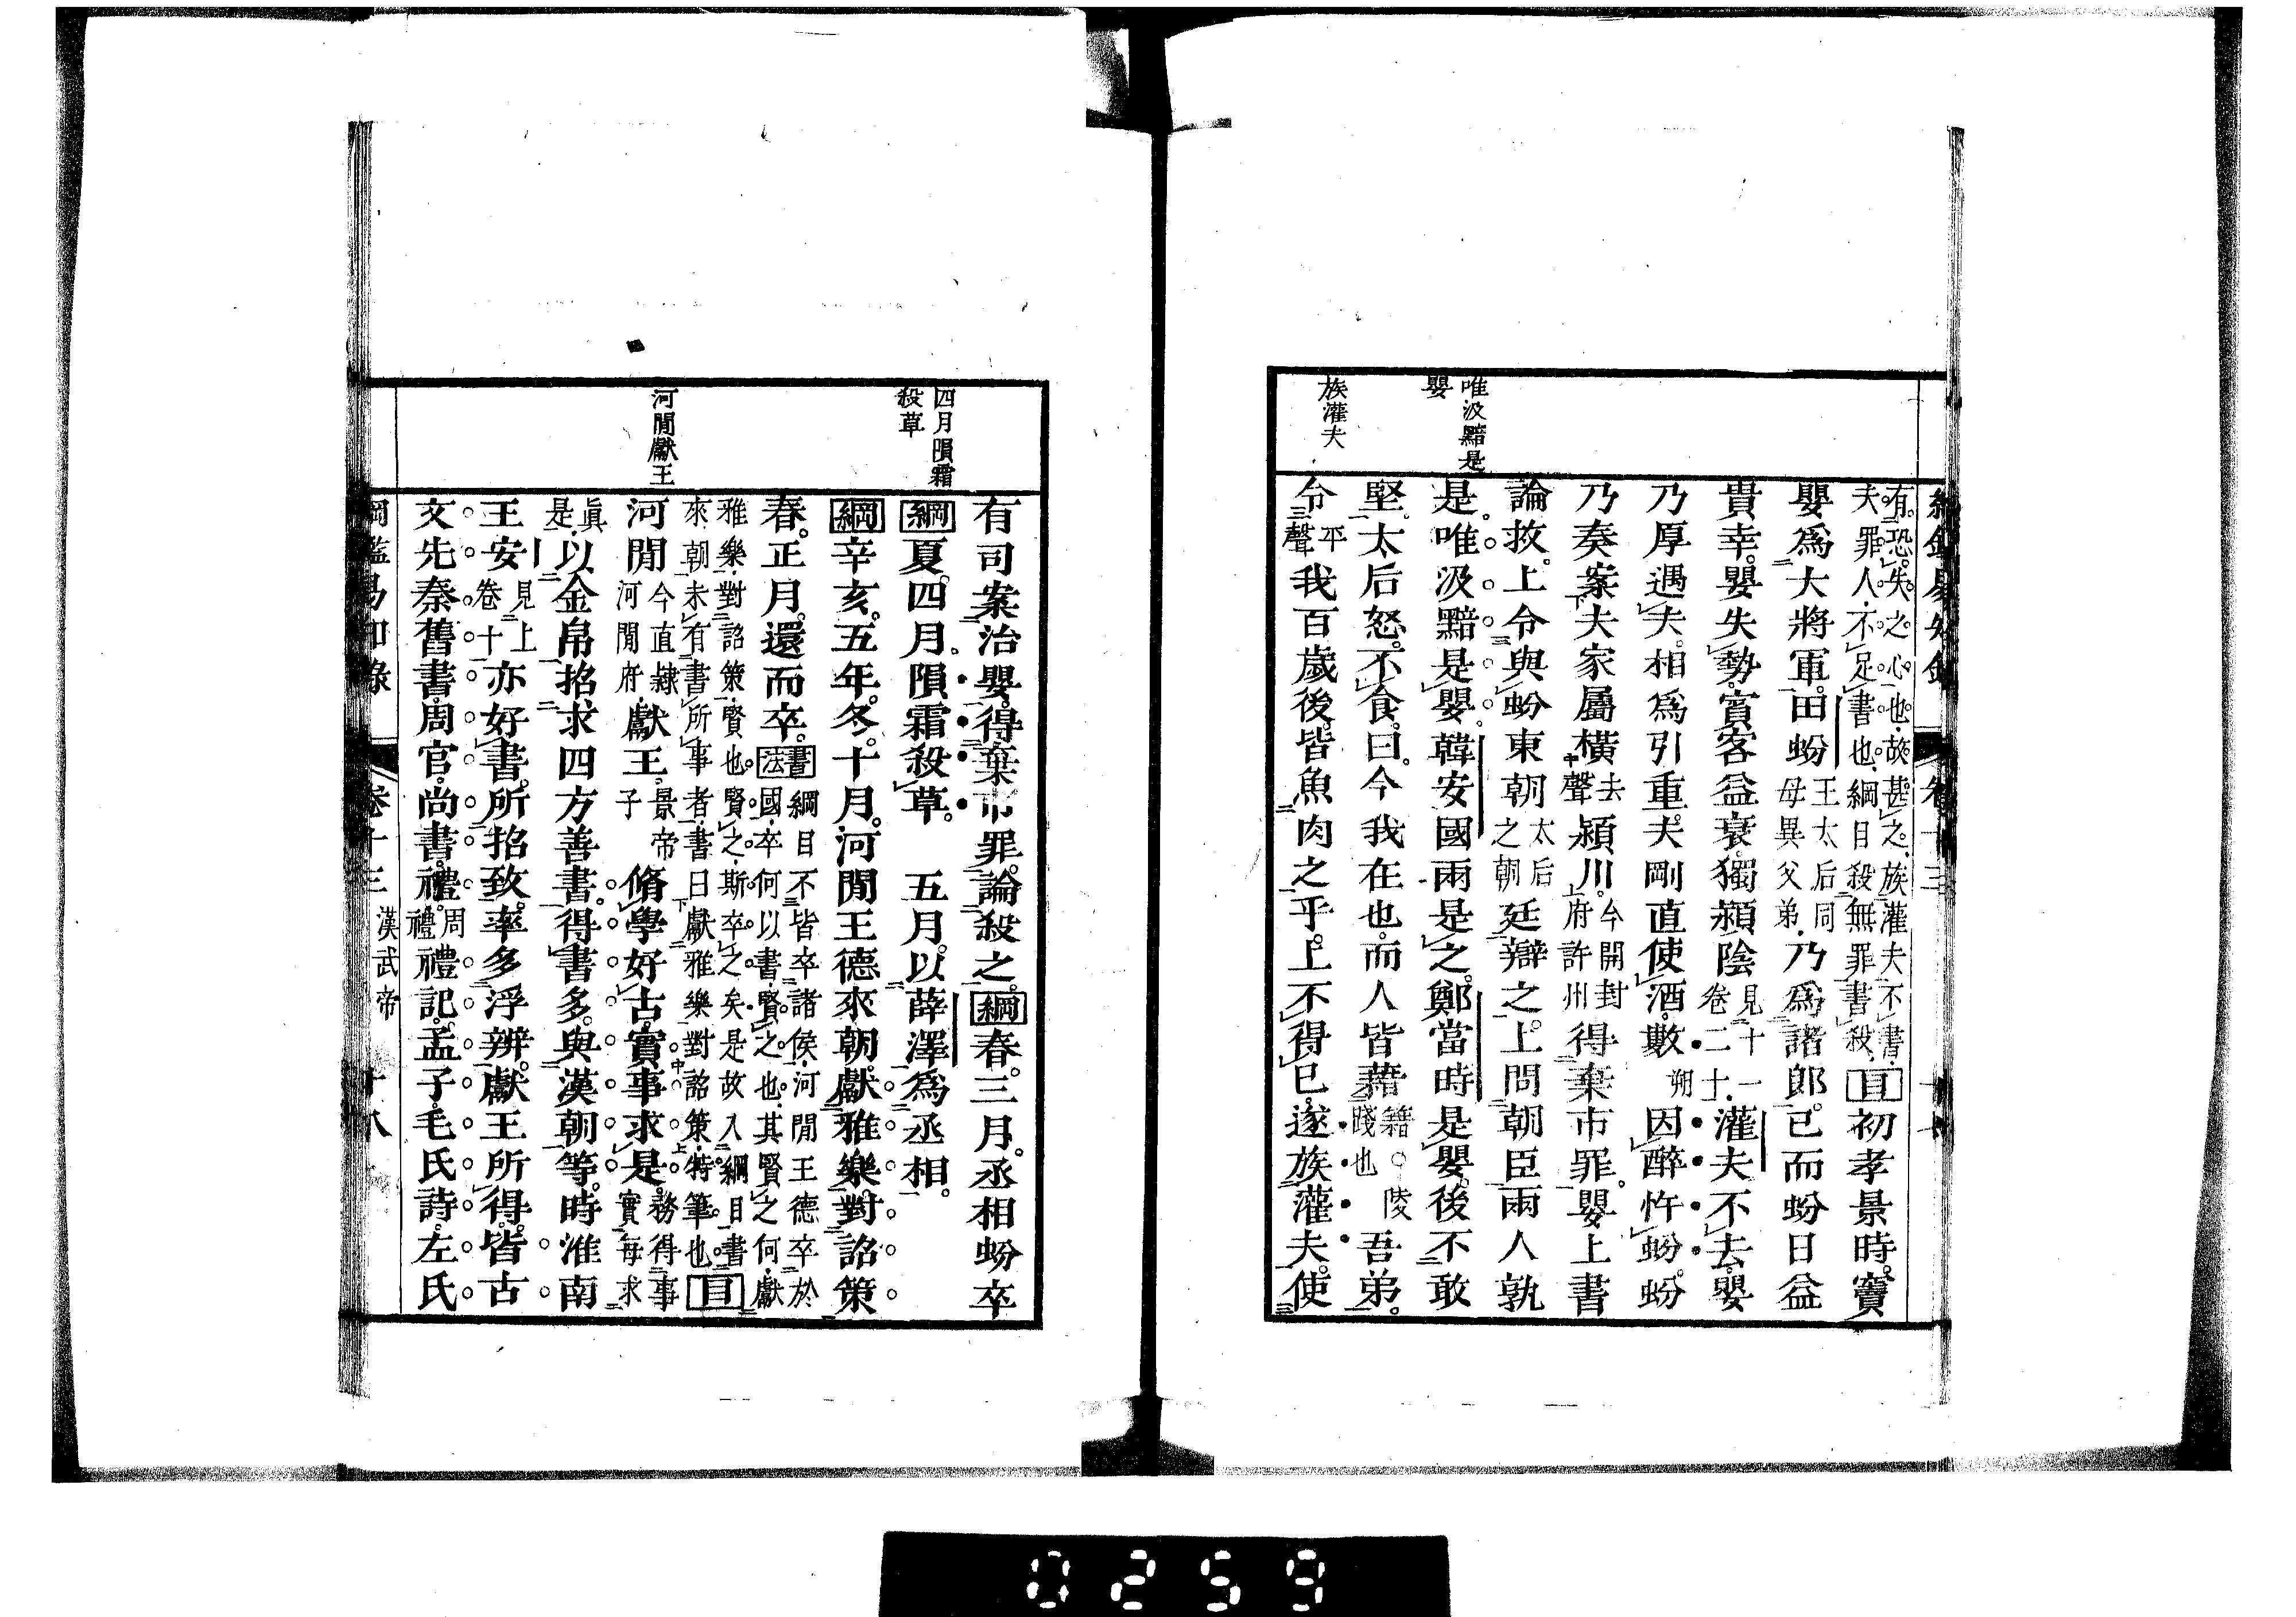 有恐失之心也故甚之族灌夫不書夫罪人不足書也綱目殺無罪書殺目初孝景時竇
嬰爲大將軍田蚡王太后同母異父弟乃爲諸郎已而蚡日益
貴幸嬰失勢賓客益衰獨潁陰見十一卷二十灌夫不去嬰
乃厚遇夫相爲引重夫剛直使酒數朔因醉忤蚡蚡
乃奏案夫家屬橫去聲潁川今開封府許州得棄市罪嬰上書
論救上令與蚡東朝太后之朝廷辯之上問朝臣兩人孰
唯汲黯是嬰
是唯汲黯是嬰韓安國兩是之鄭當時是嬰後不敢
堅太后怒不食曰今我在也而人皆藉籍○陵踐也吾弟
族灌夫
令平聲我百歲後皆魚肉之乎上不得已遂族灌夫使
有司案治嬰得棄市罪論殺之綱春三月丞相蚡卒
四月隕霜殺草
綱夏四月隕霜殺草 五月以薛澤爲丞相
綱辛亥五年冬十月河閒王德來朝獻雅樂對詔策
春正月還而卒書法綱目不皆卒諸侯河閒王德卒於國卒何以書賢之也其賢之何獻
雅樂對詔策賢也賢之斯卒之矣是故入綱目書來朝未有書所事者書曰獻雅樂對詔策特筆也目
河閒獻王
河閒今直隸河閒府獻王景帝子脩學好古實事求是務得事實每求
眞是以金帛招求四方善書得書多與漢朝等時淮南
王安見上卷十亦好書所招致率多浮辨獻王所得皆古
文先秦舊書周官尚書禮周禮禮記孟子毛氏詩左氏
綱鑑易知錄 卷十三 漢武帝 十八
0259